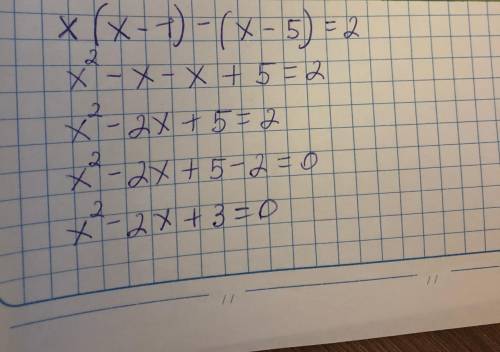 x(x-1)-(x-5)=2
x²-x-x+5=2
x²-2x+5=2
x²-2x+5-2=0
x²-2x+3=0